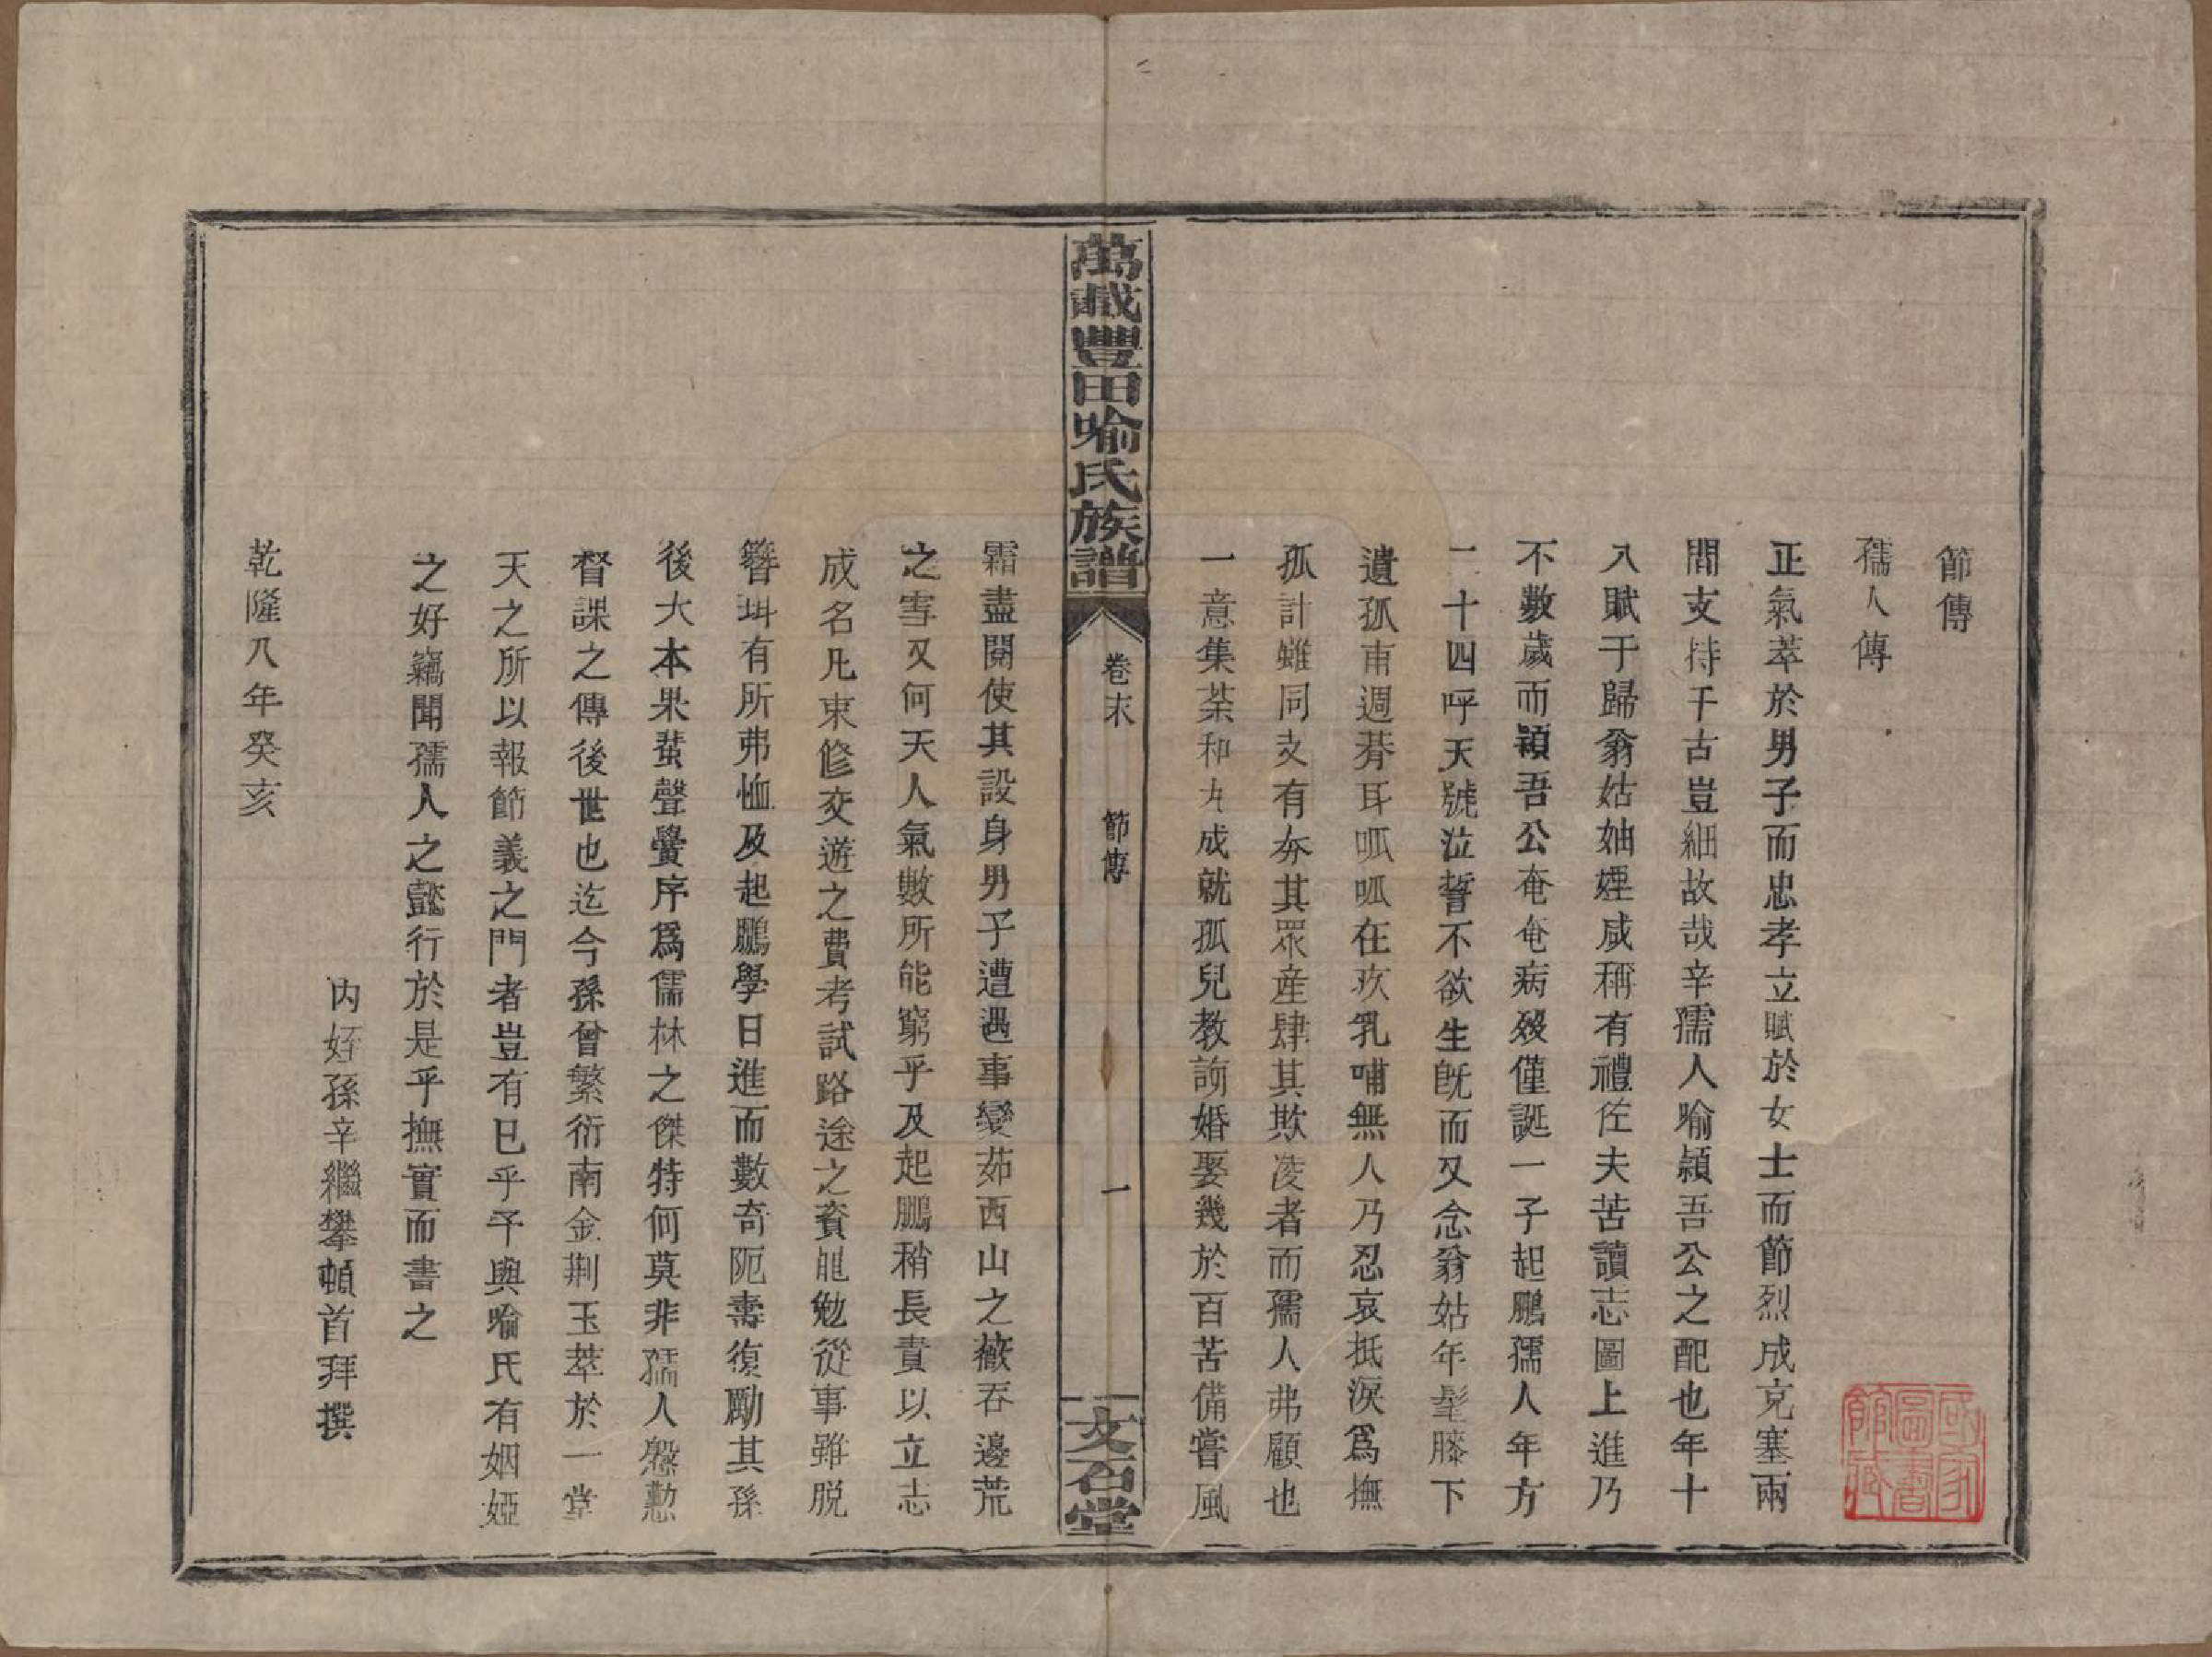 節傳
孺人傳
正氣萃於男子而忠孝立賦於女士而節烈成充塞兩
間支持千古豈細故哉辛孺人喻穎吾公之配也年十
八賦于歸翁姑妯娌咸稱有禮佐夫苦讀志圖上進乃
不數歲而穎吾公奄奄病歿僅誕一子起鵬孺人年方
二十四呼天號泣誓不欲生旣而又念翁姑年髦膝下
遺孤甫週朞耳呱呱在疚乳哺無人乃忍哀抵淚爲撫
孤計雖同支有夯其眾産肆其欺凌者而孺人弗顧也
一意集荼和丸成就孤兒教訪婚娶幾於百苦備嘗風
萬載豐田喻氏族譜
卷末
節傳
一
文石堂
霜盡閱使其設身男子遭遇事變茹西山之薇吞邊荒
之雪又何天人氣數所能窮乎及起鵬稍長責以立志
成名凡束修交遊之費考試路途之資黽勉從事雖脱
簪珥有所弗恤及起鵬學日進而數奇阨壽復勵其孫
後大本果蜚聲黌序爲儒林之傑特何莫非孺人慇懃
督課之傳後世也迄今孫曾繁衍南金荆玉萃於一堂
天之所以報節義之門者豈有已乎予與喻氏有姻婭
之好竊聞孺人之懿行於是乎撫實而書之
内姪孫辛繼攀頓首拜撰
乾隆八年癸亥
國家圖書館藏